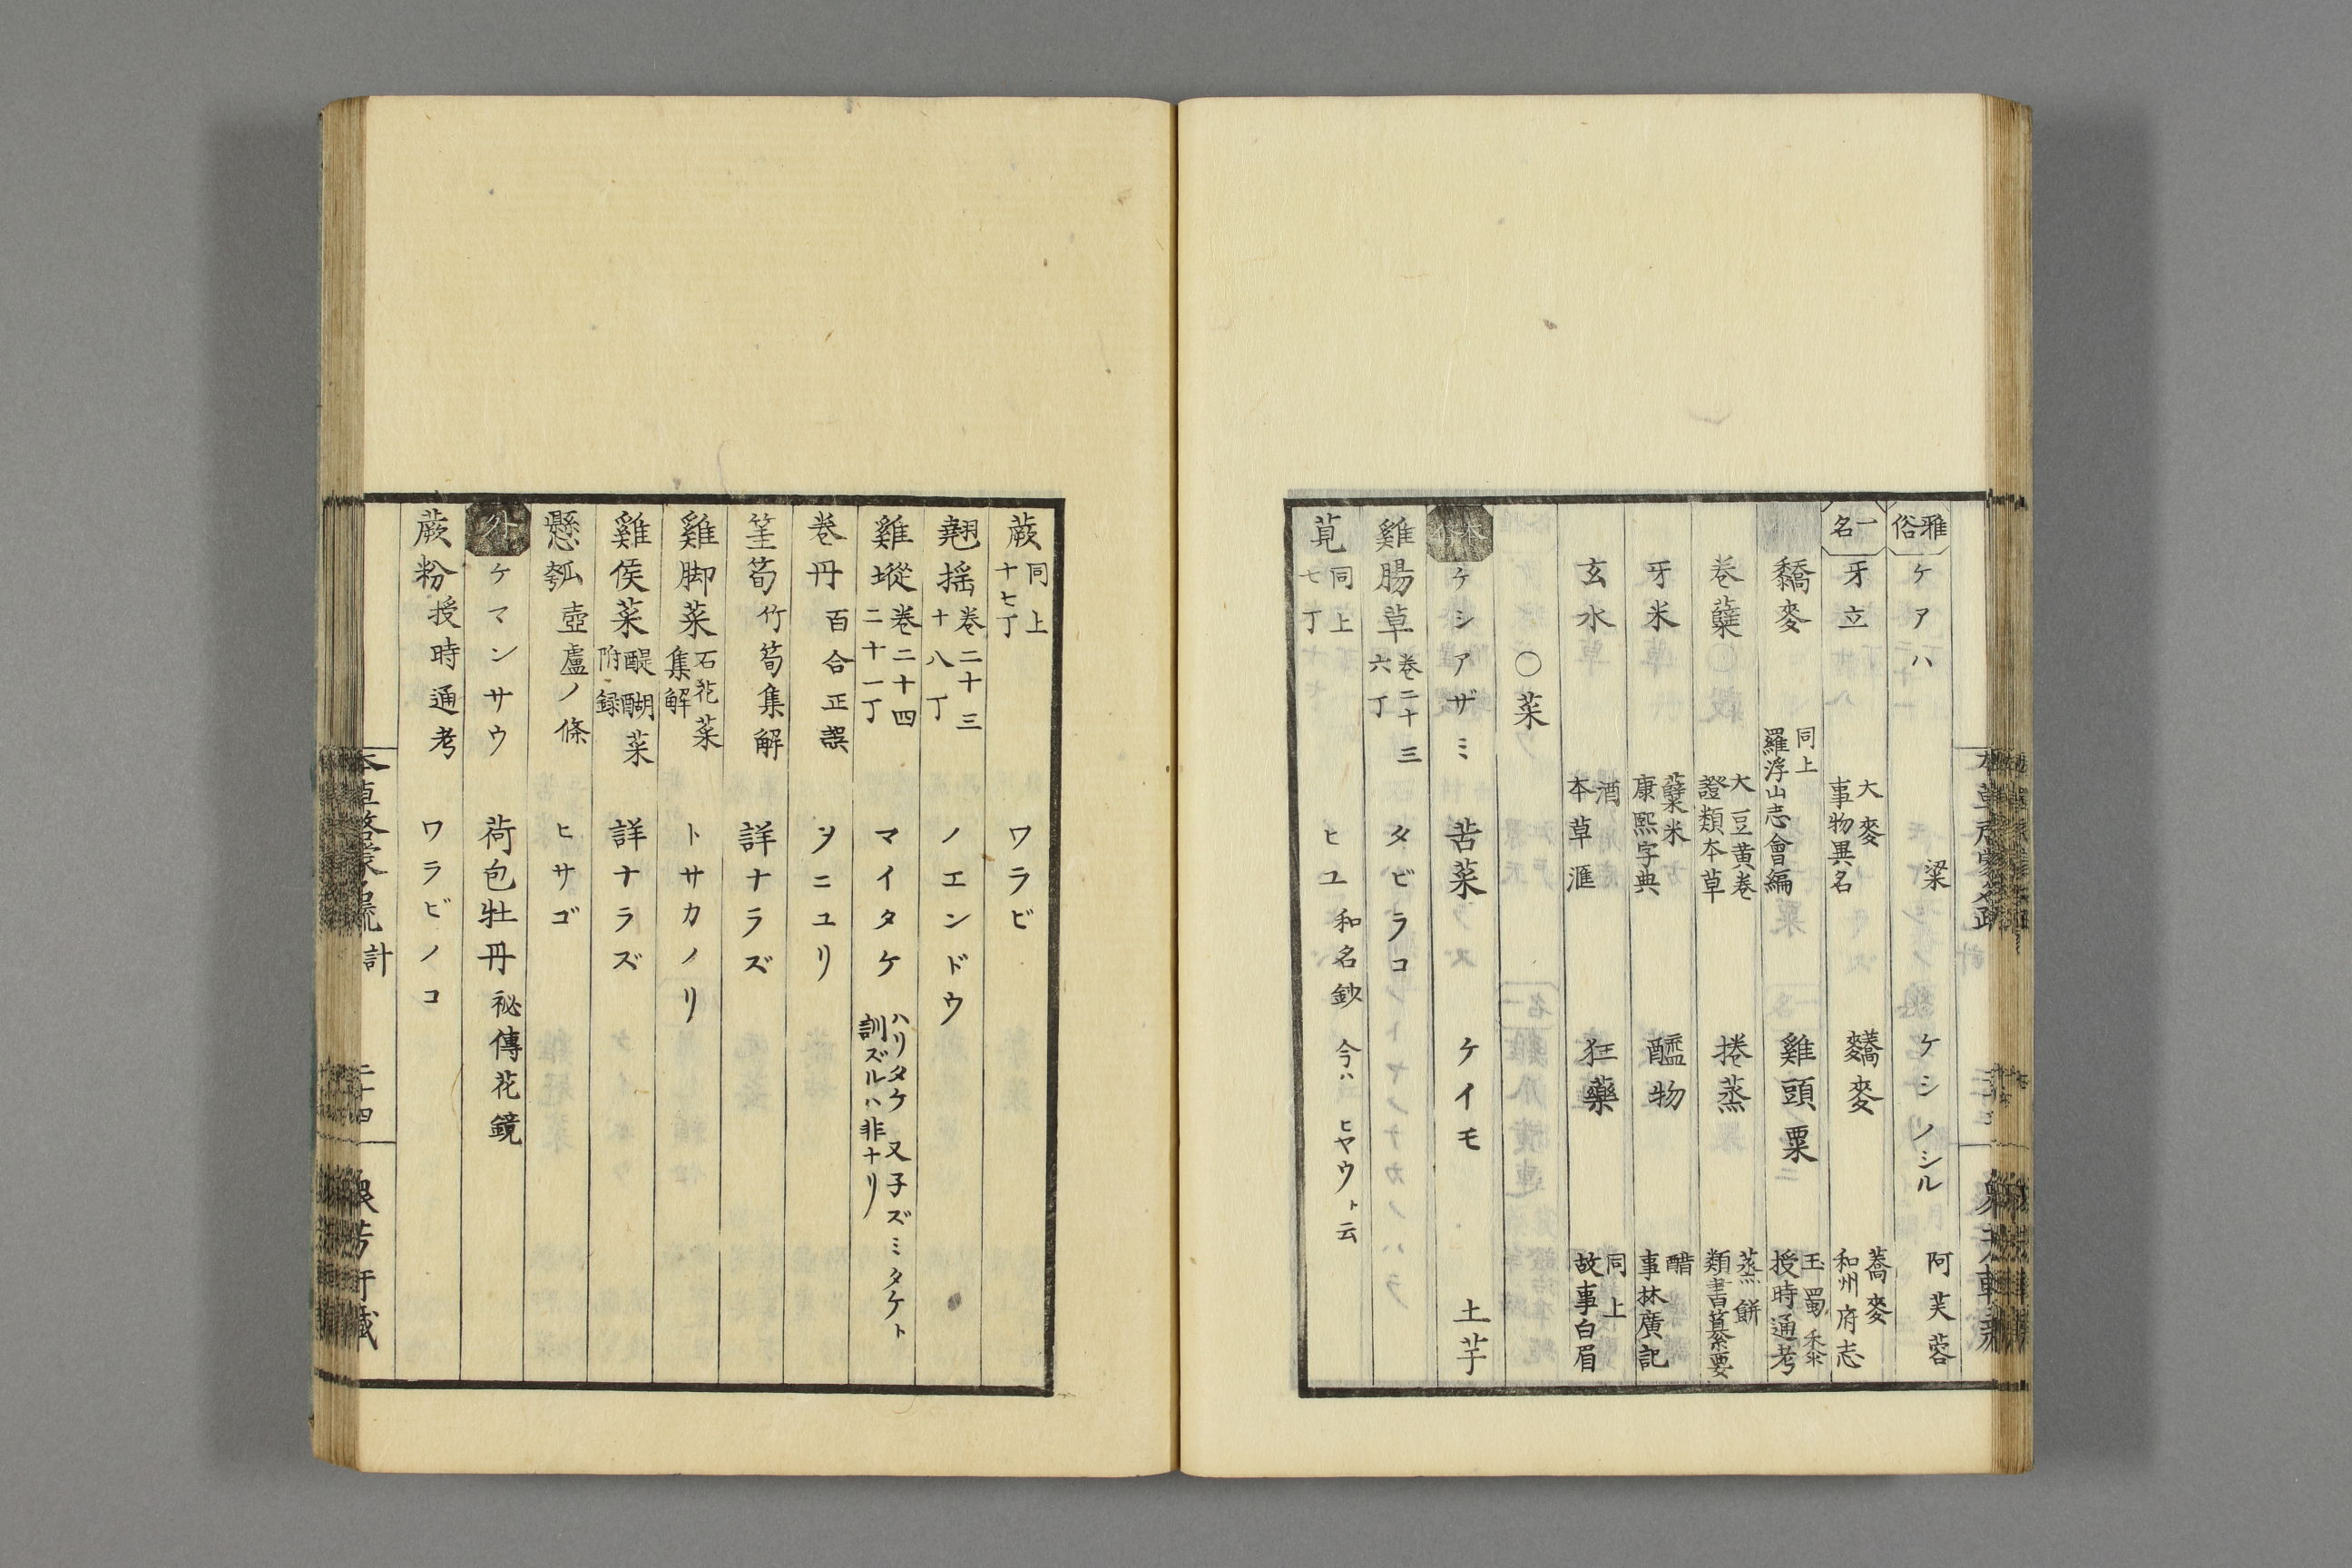 雅俗 ケアハ 粱 ケシノシル 阿芙蓉
一名 牙立 大麥 事物異名 麱麥 蕎麥 和州府志
黐麥 同上 羅浮山志會編 雞頭粟 玉蜀黍 授時通考
巻蘗 大豆黄巻 證類本草 捲蒸 蒸餅 類書纂要
牙米 蘗米 康熙字典 醯物 醋 事林廣記
玄水 酒 本草滙 狂藥 同上 故事白眉
〇菜
ケシアザミ 苦菜 ケイモ 土芋
雞腸草 巻二十三 六丁 タビラコ
莧 同上 七丁 ヒユ 和名鈔 今ハ ヒヤウト云
蕨 同上 十七丁 ワラビ
翹揺 巻二十三 十八丁 ノエンドウ
雞㙡 巻二十四 二十一丁 マイタケ ハリタケ 又子ズミタケト 訓ズルハ非ナリ
巻丹 百合正誤 ヲニユリ
筀筍 竹筍集解 詳ナラズ
雞脚菜 石花菜 集解 トサカノリ
雞侯菜 醍醐菜 附録 詳ナラズ
懸瓠 壺盧ノ條 ヒサゴ
外 ケマンサウ 荷包牡丹 祕傳花鏡
蕨粉 授時通考 ワラビノコ
本草啓蒙名疏 計 二十四